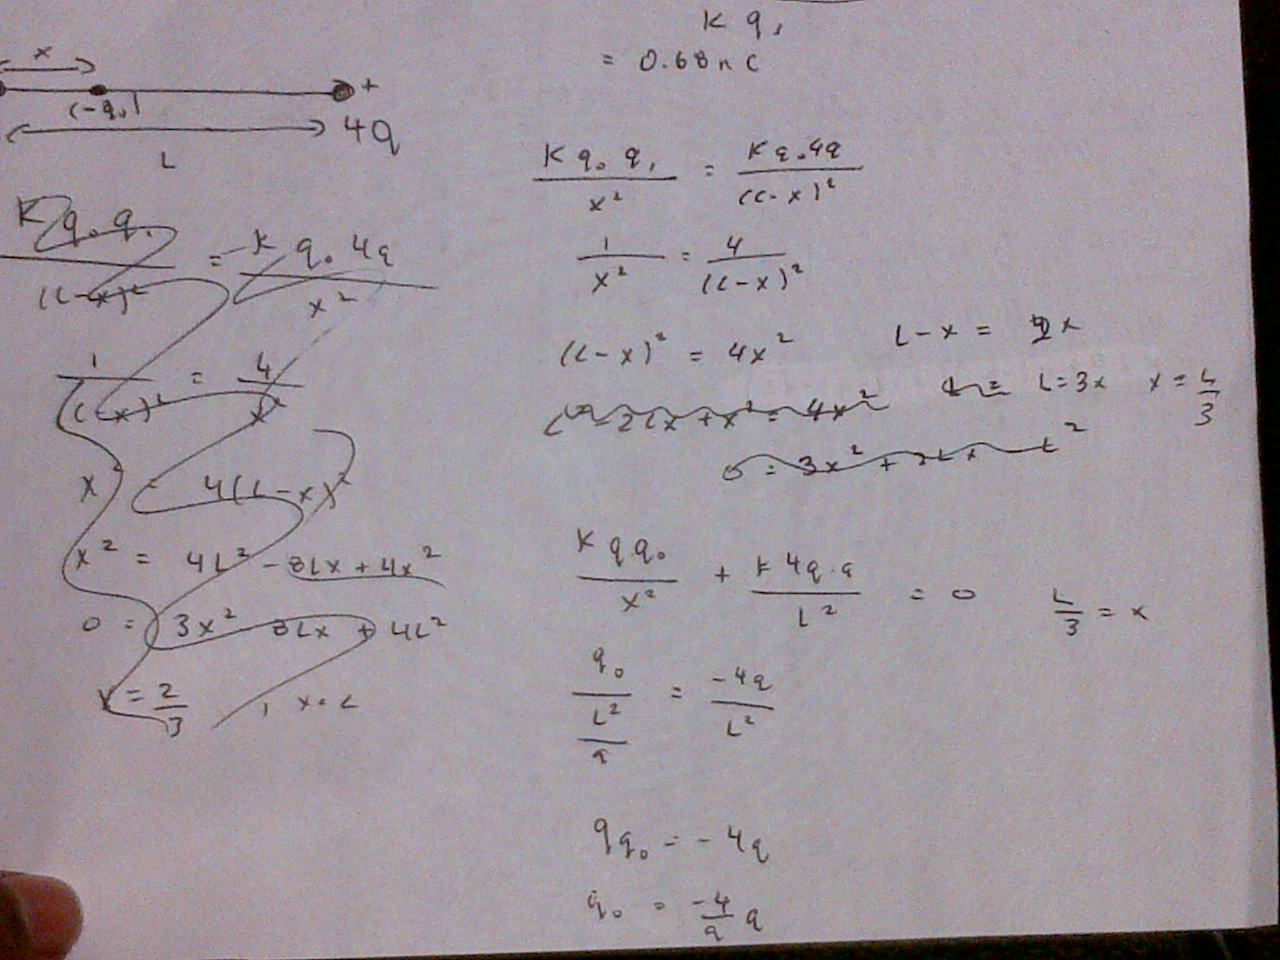 K q,
= 0.68 n C
x
(-q₀)
+
4q
L
K q₀ q, / (L-x)² = -K q₀ 4q / x²
1 / (L-x)² = 4 / x²
x² = 4(L-x)²
x² = 4L² - 8Lx + 4x²
0 = 3x² 8Lx + 4L²
x = 2/3 , x = L
K q₀ q, / x² = K q₀ 4q / (L-x)²
1 / x² = 4 / (L-x)²
(L-x)² = 4x²
L-x = 2x
L = 3x x = L/3
L² - 2Lx + x² = 4x²
0 = 3x² + 2Lx - L²
K q q₀ / x² + K 4q·q / L² = 0
L/3 = x
q₀ / (L²/9) = -4q / L²
9q₀ = -4q
q₀ = -4/9 q